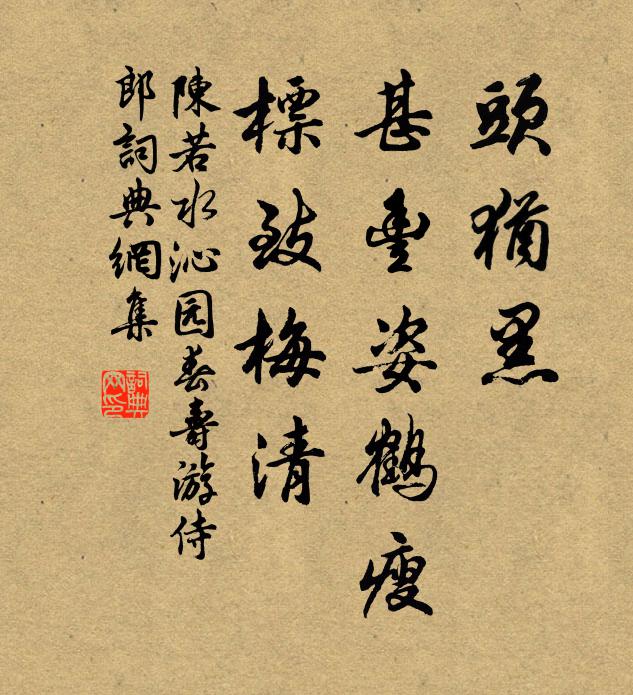 頭猶黑
甚豐姿鶴瘦
標致梅清
陳若水沁园春壽游侍
郎詞典網集
詞典
网印